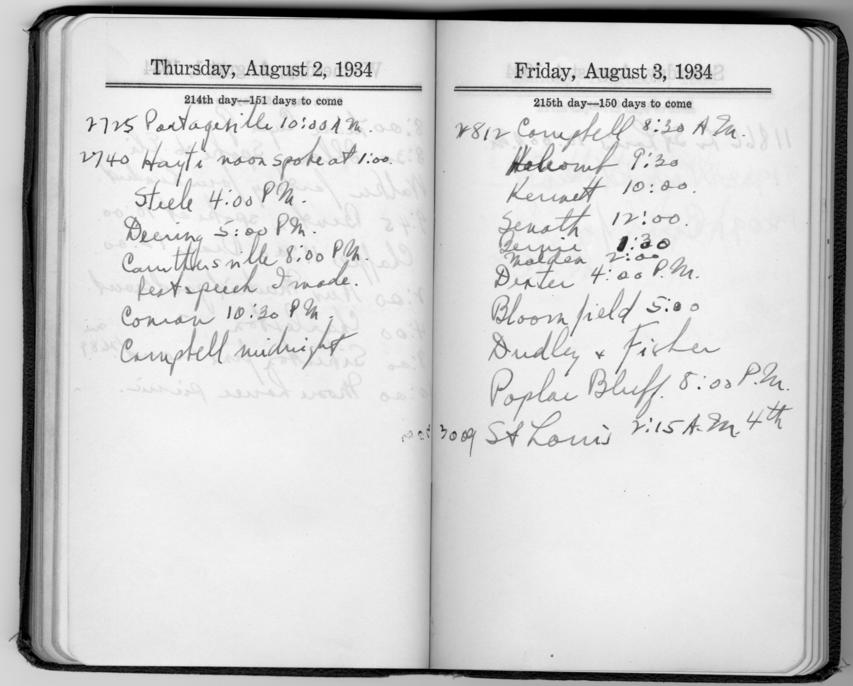 Thursday, August 2, 1934
214th day—151 days to come
2725 Portageville 10:00 A.M.
2740 Hayti noon spoke at 1:00.
Steele 4:00 P.M.
Deering 5:00 P.M.
Caruthersville 8:00 P.M.
Best speech I made.
Conran 10:30 P.M.
Campbell midnight
Friday, August 3, 1934
215th day—150 days to come
2812 Campbell 8:30 A.M.
Holcomb 9:30
Kennett 10:00.
Senath 12:00
1:30
Malden 2:00
Dexter 4:00 P.M.
Bloomfield 5:00
Dudley + Fisher
Poplar Bluff. 8:00 P.M.
3009 St Louis 2:15 A.M. 4th